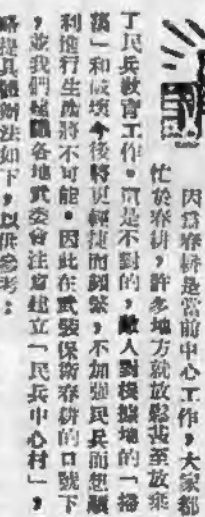 因爲春耕是當前中心工作，大家都
忙於春耕，許多地方就放鬆甚至放棄
了民兵教育工作。這是不對的，敵人對根據地的「掃
蕩」和破壞今後將更輕捷而頻繁，不加强民兵而想順
利進行生產將不可能。因此在武裝保衛春耕的口號下
，並我們希望各地武委會注意建立「民兵中心村」，
略提具體辦法如下，以供參考：